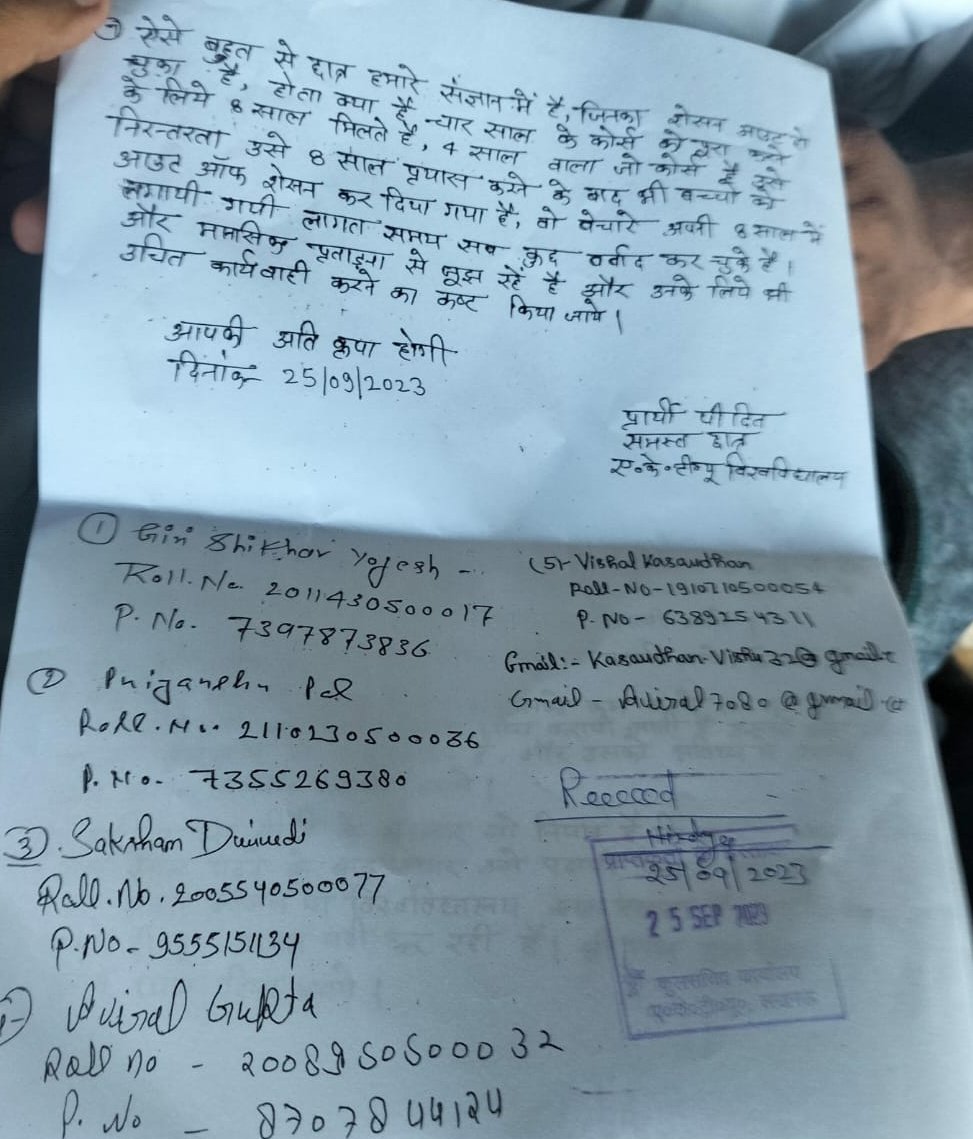 ऐसे बहुत से छात्र हमारे संज्ञान में है, जिनका शेसन आउट हो
चुका है, होता क्या है चार साल के कोर्स को पूरा करने
के लिये 8 साल मिलते है, 4 साल वाला जो कोर्स है उसे
निरन्तरता उसे 8 साल प्रयास करने के बाद भी बच्चो को
आउट ऑफ शेसन कर दिया गया है, वो बेचारे अपनी 8 साल में
लगायी गयी लागत समय सब कुछ बर्बाद कर चुके है।
और मानसिक प्रताड़ना से जूझ रहे है और उनके लिये भी
उचित कार्यवाही करने का कष्ट किया जाये।
आपकी अति कृपा होगी
दिनांक 25/09/2023
प्रार्थी पीड़ित
समस्त छात्र
ए०के०टी०यू विश्वविद्यालय
① Giri Shikhar Yogesh -
Roll. No. 2011430500017
P. No. 7397873836
② Priyanshu Pal
Roll. No. 2110230500036
P. No. 7355269380
③. Saksham Dwivedi
Roll. No. 2005540500077
P.No- 9555151134
Aviral Gupta
Roll no - 2008950500032
P. No - 8707844124
(5)- Vishal Kasaudhan
Roll-NO-1910210500054
P. NO- 6389254311
Gmail:- Kasaudhan.Vishu32@gmail.c
Gmail - Aviral7080@gmail.co
Received
25/09/2023
25 SEP 2023
कुलसचिव कार्यालय
ए०के०टी०यू०, लखनऊ